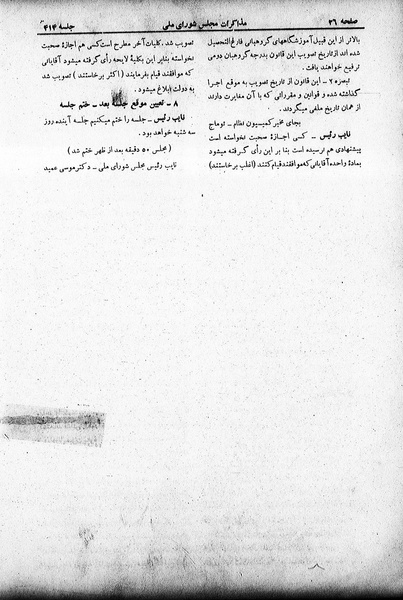 صفحه ۲۶
مذاکرات مجلس شورای ملی
جلسه ۴۱۴
بالاتر از این قبیل آموزشگاههای گروهبانی فارغ‌التحصیل
شده اند از تاریخ تصویب این قانون بدرجه گروهبان دومی
ترفیع خواهند یافت.
تبصره ۲۰ - این قانون از تاریخ تصویب به موقع اجرا
گذاشته شده و قوانین و مقرراتی که با آن مغایرت دارند
از همان تاریخ ملغی میگردند.
بجای مخبر کمیسیون نظام - توماج
نایب رئیس - کسی اجازهٔ صحبت نخواسته است
پیشنهادی هم نرسیده است بنا بر این رأی گرفته میشود
بمادهٔ واحده آقایانی که موافقند قیام کنند (اغلب برخاستند)
تصویب شد. کلیات آخر مطرح است کسی هم اجازهٔ صحبت
نخواسته بنابر این بکلیهٔ لایحه رأی گرفته میشود آقایانی
که موافقند قیام بفرمایند (اکثر برخاستند) تصویب شد
به دولت ابلاغ میشود.
۸ - تعیین موقع جلسه بعد - ختم جلسه
نایب رئیس - جلسه را ختم میکنیم جلسه آینده روز
سه شنبه خواهد بود.
(مجلس ۵۰ دقیقه بعد از ظهر ختم شد)
نایب رئیس مجلس شورای ملی - دکتر موسی عمید